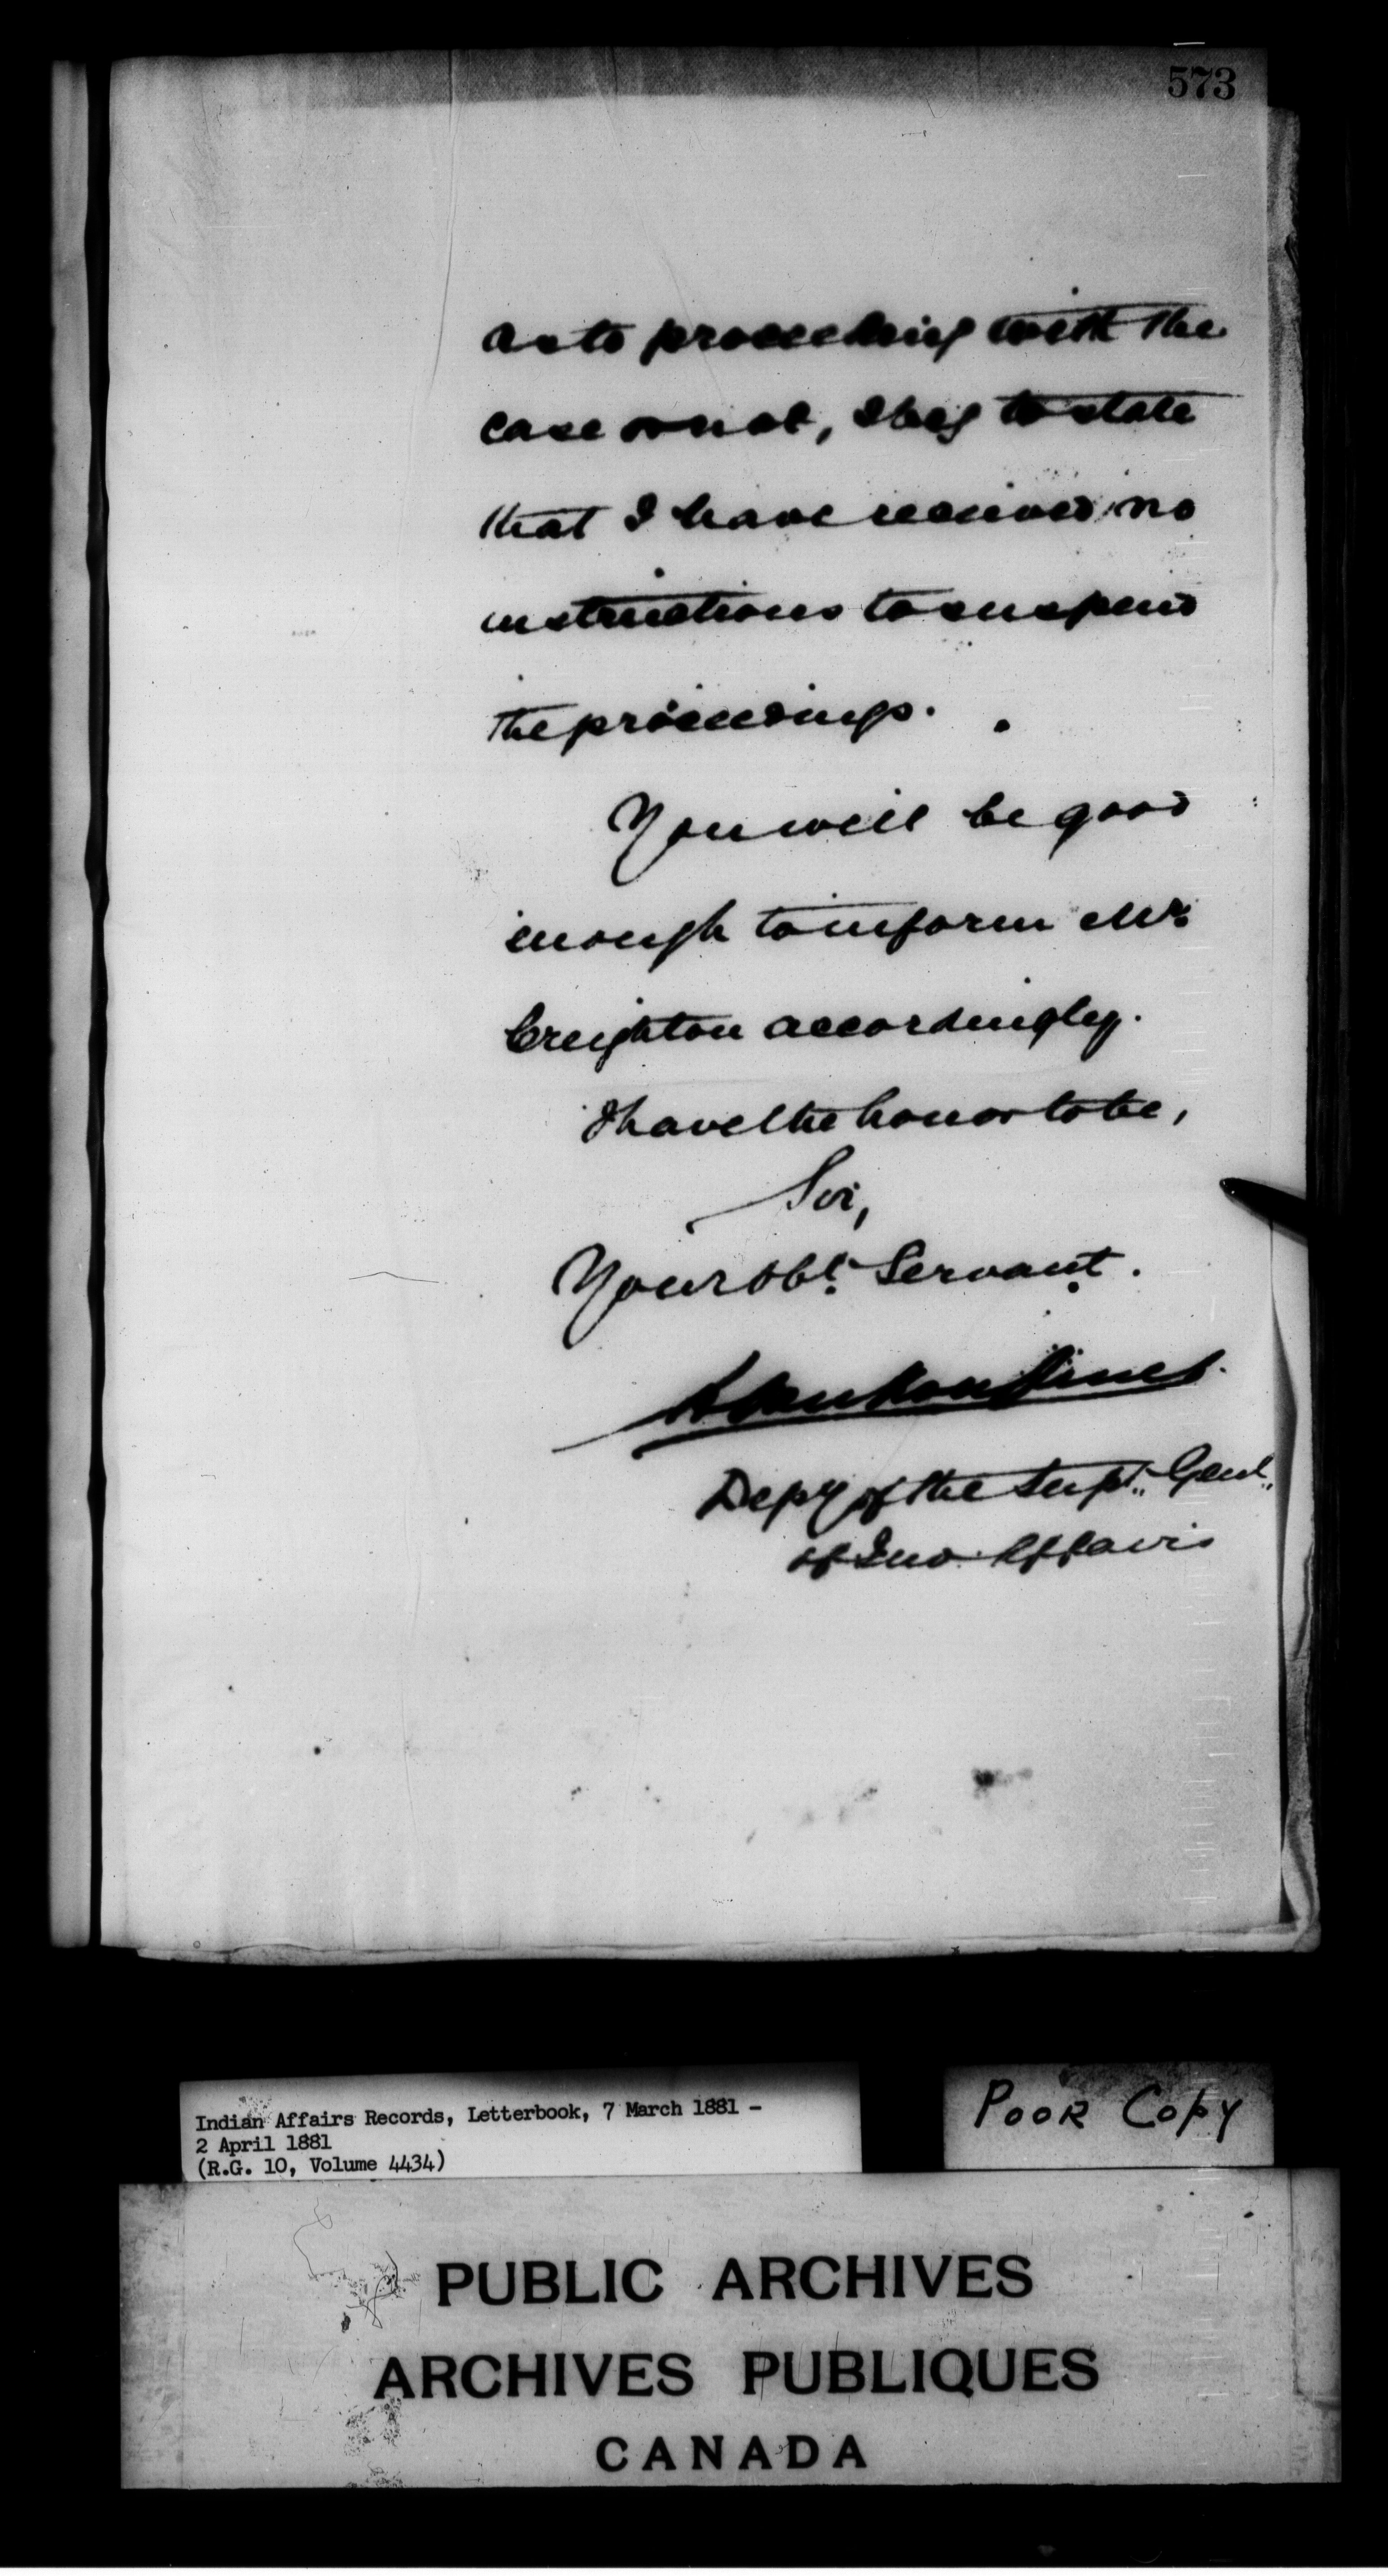 573
as to proceeding with the
case or not, I beg to state
that I have received no
instructions to suspend
the proceedings.
You will be good
enough to inform Mr.
Creighton accordingly.
I have the honor to be,
Sir,
Your obt. Servant.
Depy of the Supt. Genl.
of Ind. Affairs
Indian Affairs Records, Letterbook, 7 March 1881 -
2 April 1881
(R.G. 10, Volume 4434)
POOR COPY
PUBLIC ARCHIVES
ARCHIVES PUBLIQUES
CANADA